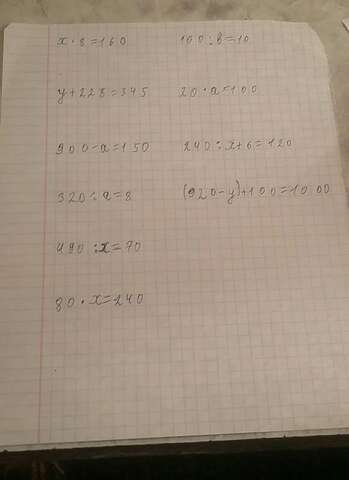 x · 8 = 160
y + 228 = 345
900 - a = 150
320 : a = 8
490 : x = 70
80 · x = 240
100 : b = 10
20 · a = 100
240 : x + 6 = 120
(920 - y) + 100 = 1000